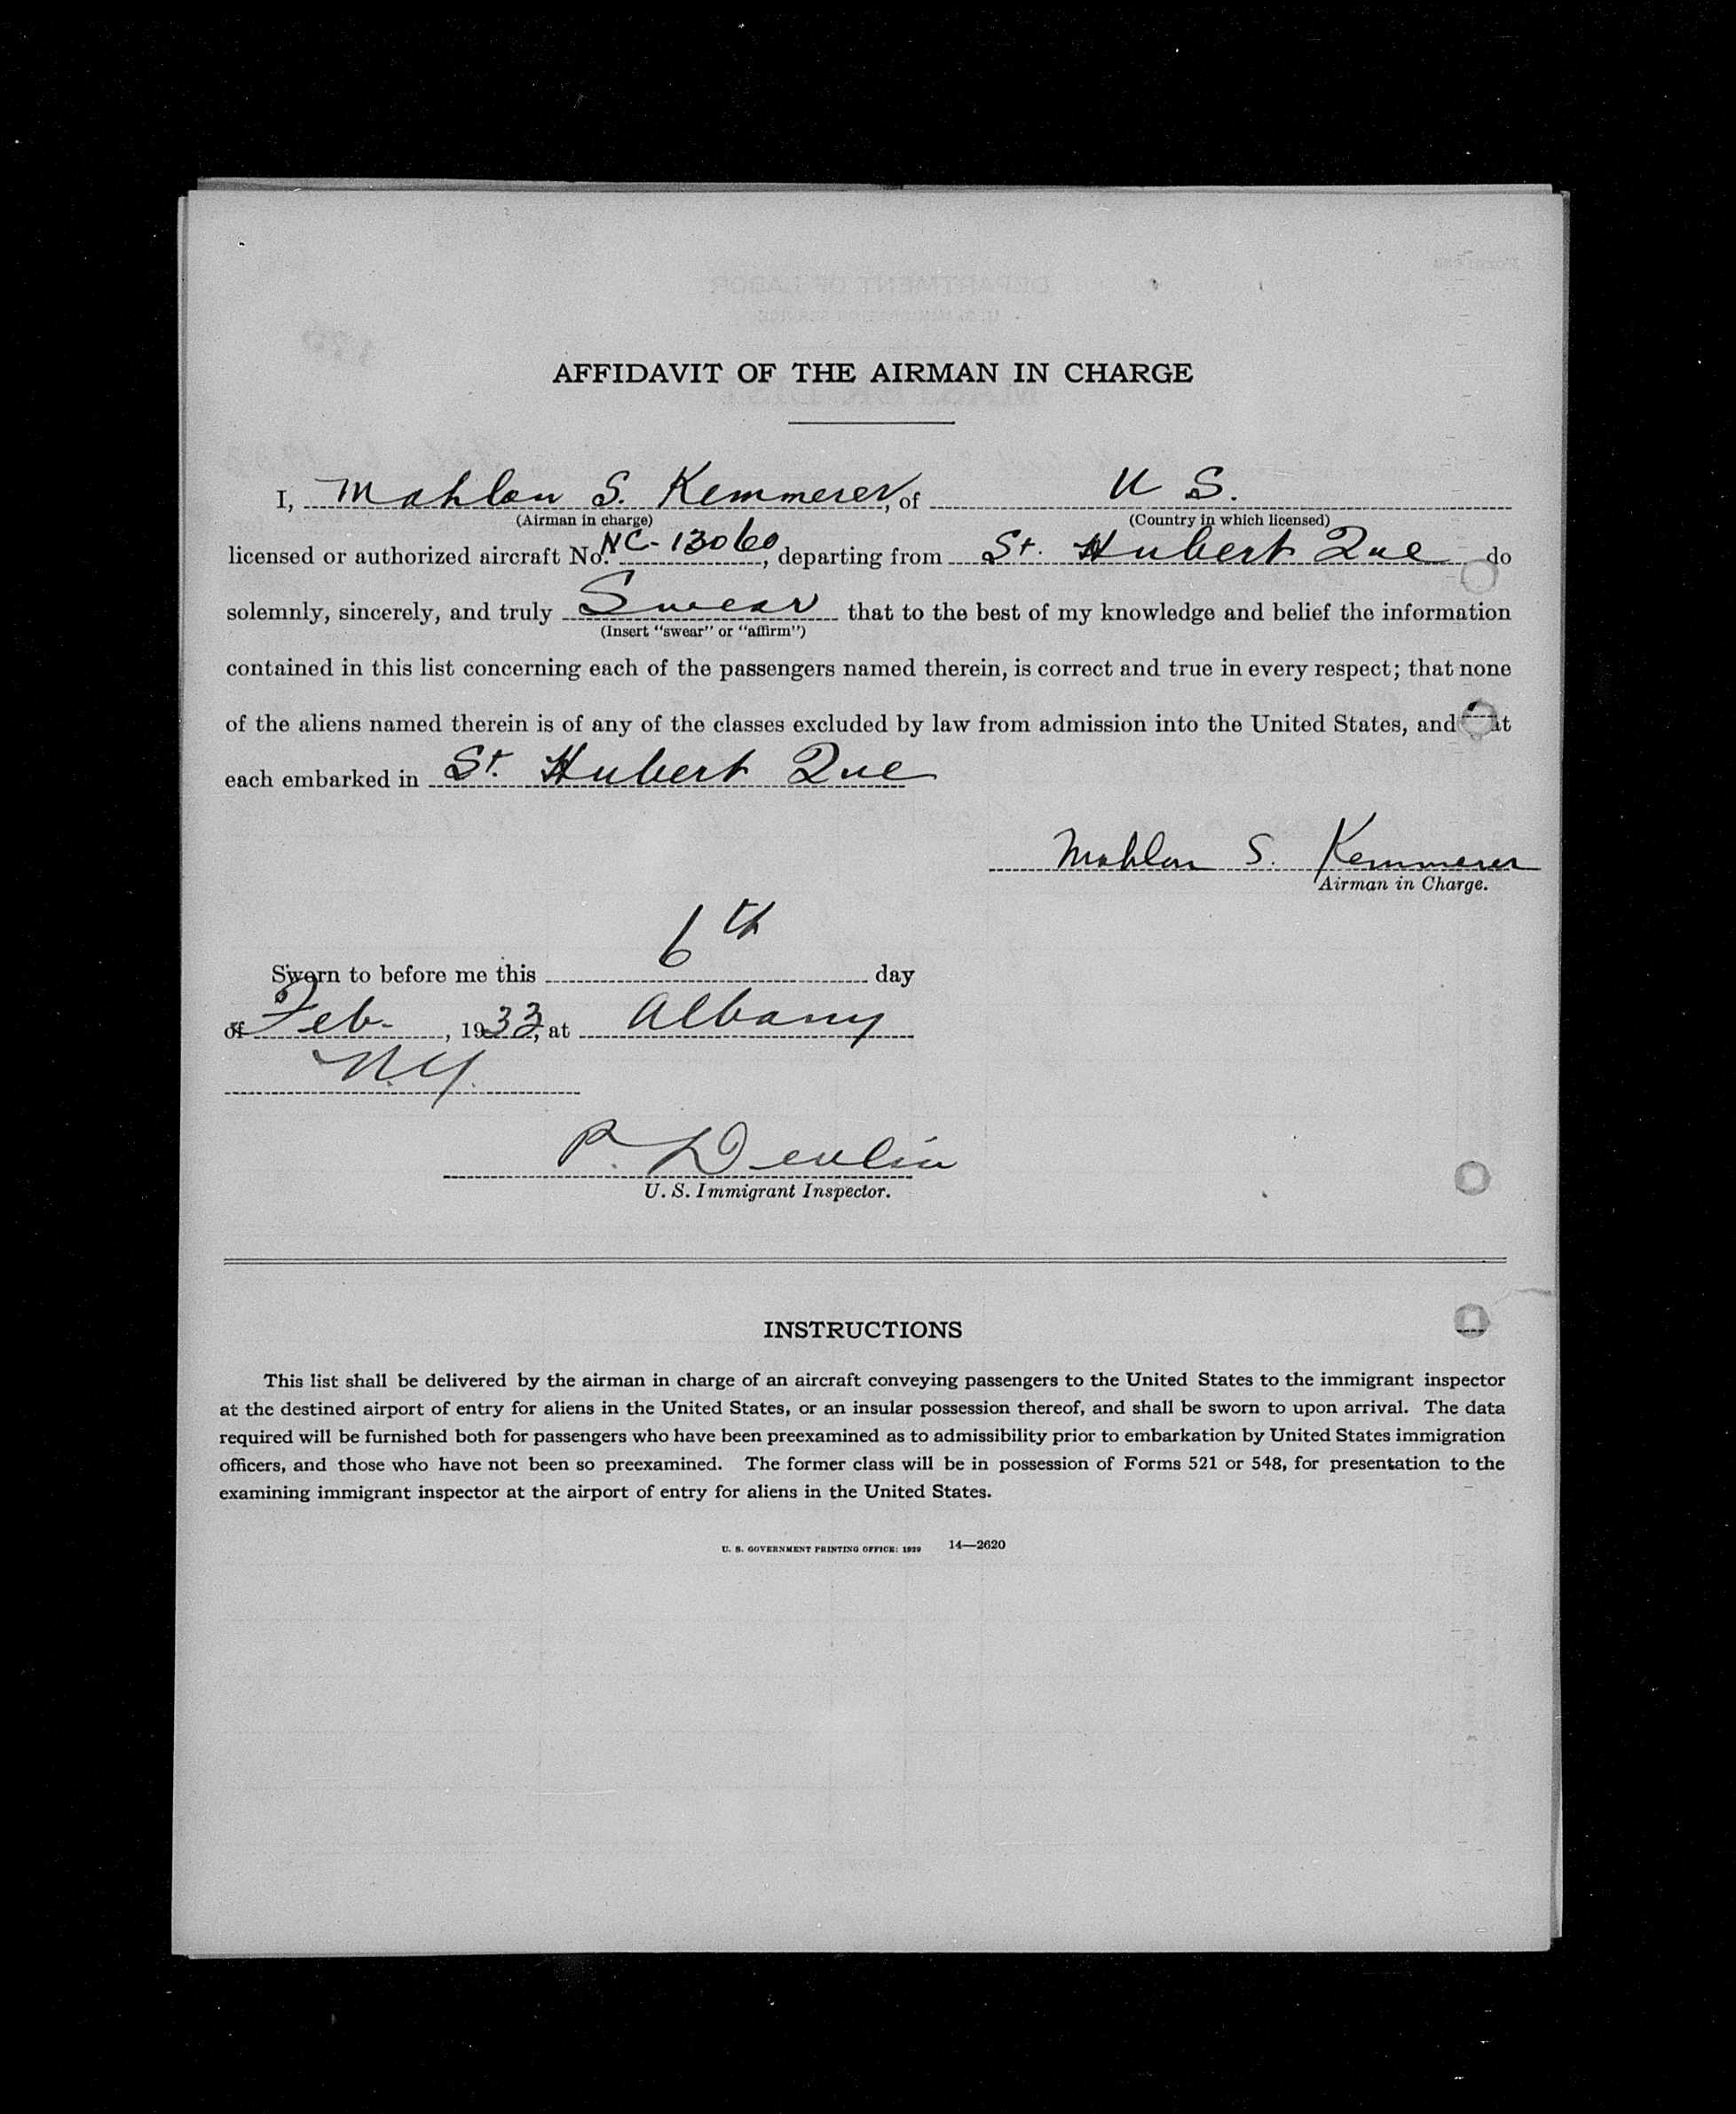 AFFIDAVIT OF THE AIRMAN IN CHARGE
I, Mahlon S. Kemmerer, of U S.
(Airman in charge) (Country in which licensed)
licensed or authorized aircraft No. NC-13060, departing from St. Hubert Que do
solemnly, sincerely, and truly Swear that to the best of my knowledge and belief the information
(Insert "swear" or "affirm")
contained in this list concerning each of the passengers named therein, is correct and true in every respect; that none
of the aliens named therein is of any of the classes excluded by law from admission into the United States, and
each embarked in St. Hubert Que
Mahlon S. Kemmerer
Airman in Charge.
Sworn to before me this 6th day
of Feb. , 1933, at Albany
N.Y.
P. Devlin
U. S. Immigrant Inspector.
INSTRUCTIONS
This list shall be delivered by the airman in charge of an aircraft conveying passengers to the United States to the immigrant inspector
at the destined airport of entry for aliens in the United States, or an insular possession thereof, and shall be sworn to upon arrival. The data
required will be furnished both for passengers who have been preexamined as to admissibility prior to embarkation by United States immigration
officers, and those who have not been so preexamined. The former class will be in possession of Forms 521 or 548, for presentation to the
examining immigrant inspector at the airport of entry for aliens in the United States.
U. S. GOVERNMENT PRINTING OFFICE: 1929 14—2620